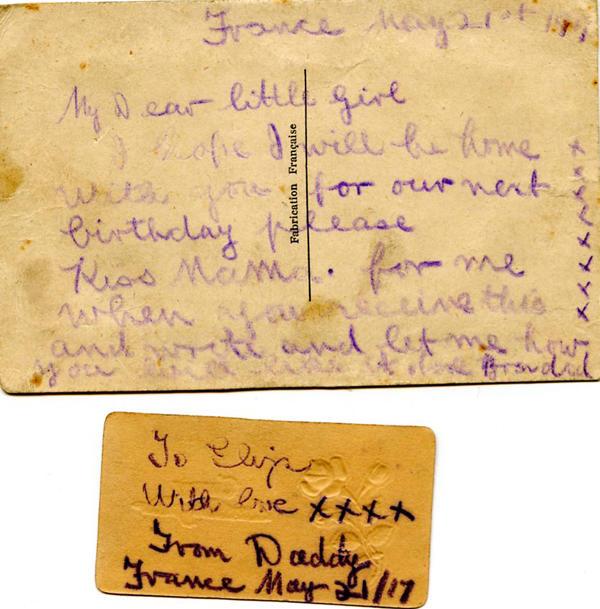 France May 21st
My Dear little girl
I hope I will be home
with you for our next
birthday please
Kiss Mama. for me
when you receive this
and write and let me how
you like it love
x x x x x x x x
Fabrication Française
To
With love x x x x
From Daddy
France May 21/17